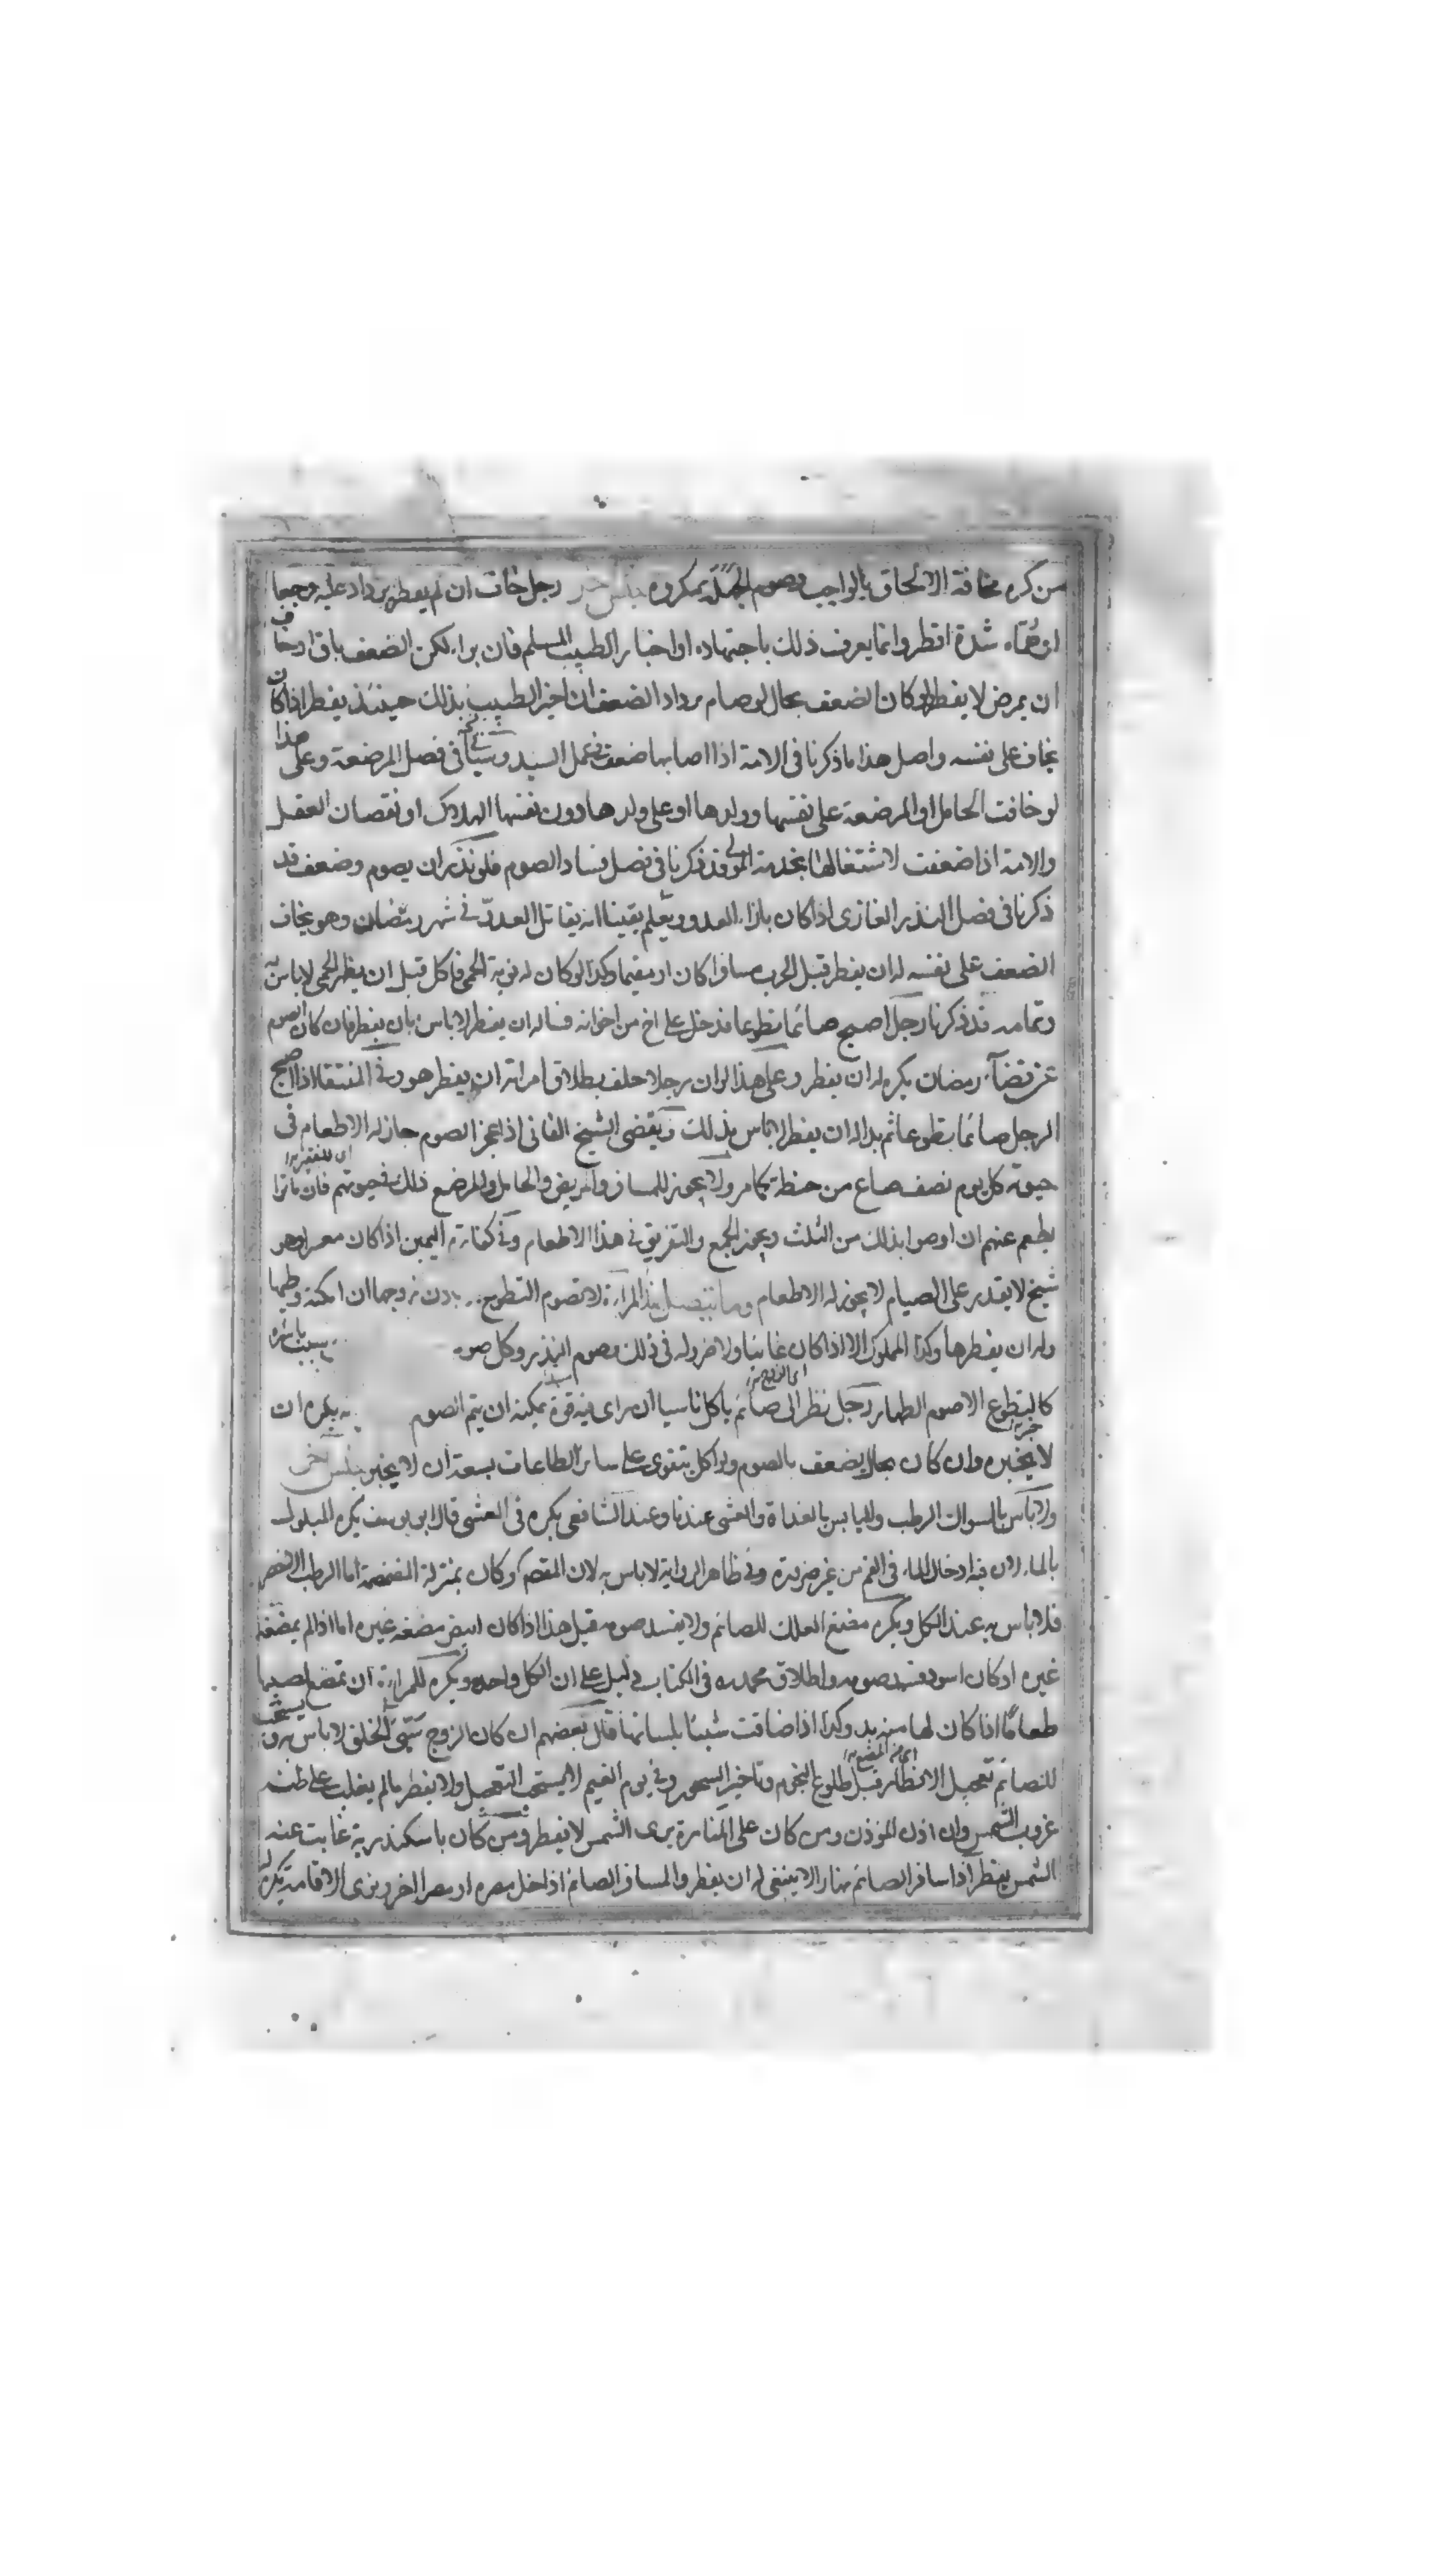 من كره مخافة الالحاق بالواجب وصوم الجملة بمكروه جنس اخر رجل خاف ان لم يفطر يزداد عليه وجعا
او حماه شدة افطر وانما يعرف ذلك باجتهاده او اخبار الطبيب المسلم فان برا ولكن الضعف باق او خاف
ان يمرض لا يفطر ولو كان الضعف بحال لو صام يزداد الضعف ان اخبر الطبيب بذلك حينئذ يفطر اذا كان
يخاف على نفسه واصل هذا ما ذكرنا في الامة اذا اصابها ضعف في عمل السيد وسياتي في فصل المرضعة وعلى هذا
لو خافت الحامل او المرضعة على نفسها وولدها او على ولدها دون نفسها الهلاك او نقصان العقل
والامة اذا ضعفت لاشتغالها بخدمة المولى قد ذكرنا في فصل فساد الصوم فلو نذر ان يصوم وضعف قد
ذكرنا في فصل النذر الغازى اذا كان بازاء العدو ويعلم يقينا انه يقاتل العدو في شهر رمضان وهو يخاف
الضعف على نفسه له ان يفطر قبل الحرب مسافرا كان او مقيما وكذا لو كان له نوبة الحمى فاكل قبل ان يظهر الحمى لا باس به
وتمامه قد ذكرنا رجل اصبح صائما تطوعا فدخل على اخ من اخوانه فساله ان يفطر لا باس بان يفطر فان كان الصوم
عن قضاء رمضان يكره له ان يفطر وعلى هذا لو ان رجلا حلف بطلاق امراته ان يفطر هو وفي المنتقا اذا اصبح
الرجل صائما تطوعا ثم بدا له ان يفطر لا باس بذلك ويقضى الشيخ الفانى اذا عجز الصوم جاز له الاطعام في
حيوته كل يوم نصف صاع من حنطة كما مر ولا يجوز للمسافر والمريض والحامل والمرضع ذلك في حيوتهم فان ماتوا
يطعم عنهم ان اوصوا بذلك من الثلث ويجوز الجمع والتفريق في هذا الاطعام وفي كفارة اليمين اذا كان معسرا وهو
شيخ لا يقدر على الصيام لا يجوز له الاطعام وما يتصل بهذا المراة لا تصوم التطوع بدون زوجها ان امكنه وطيها
وله ان يفطرها وكذا المملوك الا اذا كان غائبا ولا ضرر له في ذلك وصوم النذر وكل صوم بسبب باشره
كالتطوع الا صوم الظهار رجل نظر الى صائم ياكل ناسيا ان راى فيه قوة يمكنه ان يتم الصوم به يكره ان
لا يخبره وان كان بحال يضعف بالصوم ولو اكل يتقوى على سائر الطاعات يسعه ان لا يخبر جنس اخر
ولا باس بالسواك الرطب واليابس بالغداة والعشى عندنا وعند الشافعى يكره في العشى قال ابو يوسف يكره المبلول
بالماء لان فيه ادخال الماء في الفم من غير ضرورة وفي ظاهر الرواية لا باس به لان المقصود وكان بمنزلة المضمضة اما الرطب الاخضر
فلا باس به عند الكل ويكره مضغ العلك للصائم ولا يفسد صومه قيل هذا اذا كان ابيض مضغه غيره اما اذا لم يمضغه
غيره او كان اسود يفسد صومه واطلاق محمد ره في الكتاب دليل على ان الكل واحد ويكره للمراة ان تمضغ لصبيها
طعاما اذا كان لها منه بد وكذا اذا ذاقت شيئا بلسانها قال بعضهم ان كان الزوج سيئ الخلق لا باس به ويستحب
للصائم تعجيل الافطار قبل طلوع النجوم وتاخير السحور وفي يوم الغيم لا يستحب التعجيل ولا يفطر مالم يغلب على ظنه
غروب الشمس وان اذن المؤذن ومن كان على المنارة يرى الشمس لا يفطر ومن كان باسكندرية غابت عنه
الشمس يفطر اذا سافر الصائم نهارا لا ينبغى له ان يفطر والمسافر الصائم اذا دخل مصره او مصرا اخر ونوى الاقامة يكره